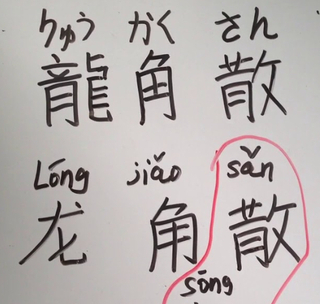 りゅう かく さん
龍 角 散
Lóng jiǎo sǎn
龙 角 散
sōng